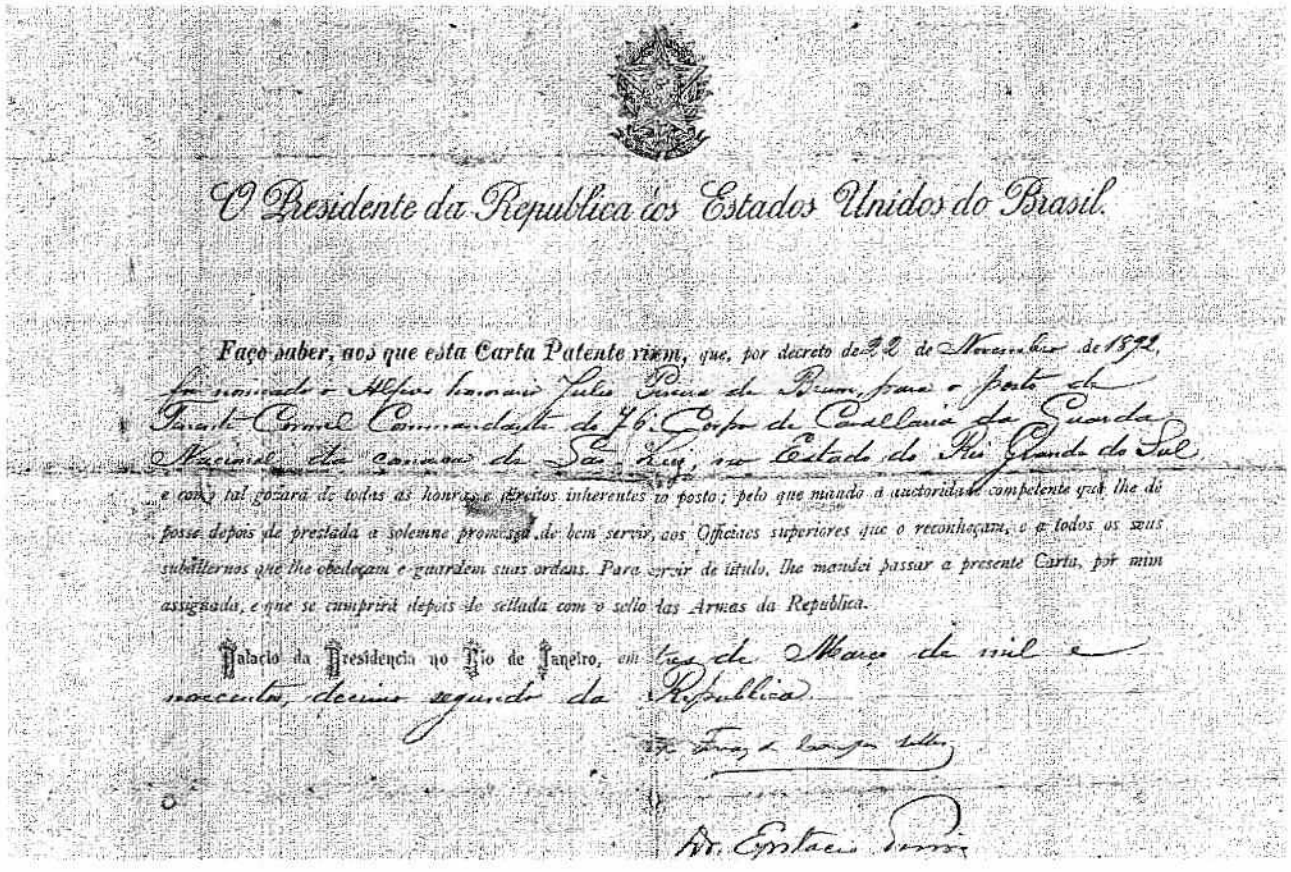 O Presidente da Republica dos Estados Unidos do Brasil.
Faço saber, aos que esta Carta Patente virem, que, por decreto de 22 de Novembro de 1892,
foi nomeado o Alferes honorario Julio Pereira de Brum, para o posto de
Tenente Coronel Commandante do 76. Corpo de Cavallaria da Guarda
Nacional da comarca de São Luiz, no Estado do Rio Grande do Sul
e como tal gozará de todas as honras e direitos inherentes ao posto; pelo que mando á auctoridade competente que lhe dê
posse depois de prestada a solemne promessa de bem servir, aos Officiaes superiores que o reconheçam, e a todos os seus
subalternos que lhe obedeçam e guardem suas ordens. Para servir de titulo, lhe mandei passar a presente Carta, por mim
assignada, e que se cumprirá depois de sellada com o sello das Armas da Republica.
Palacio da Presidencia no Rio de Janeiro, em tres de Março de mil e
novecentos, decimo segundo da Republica.
Ferraz de Campos Salles
Epitacio Pessoa